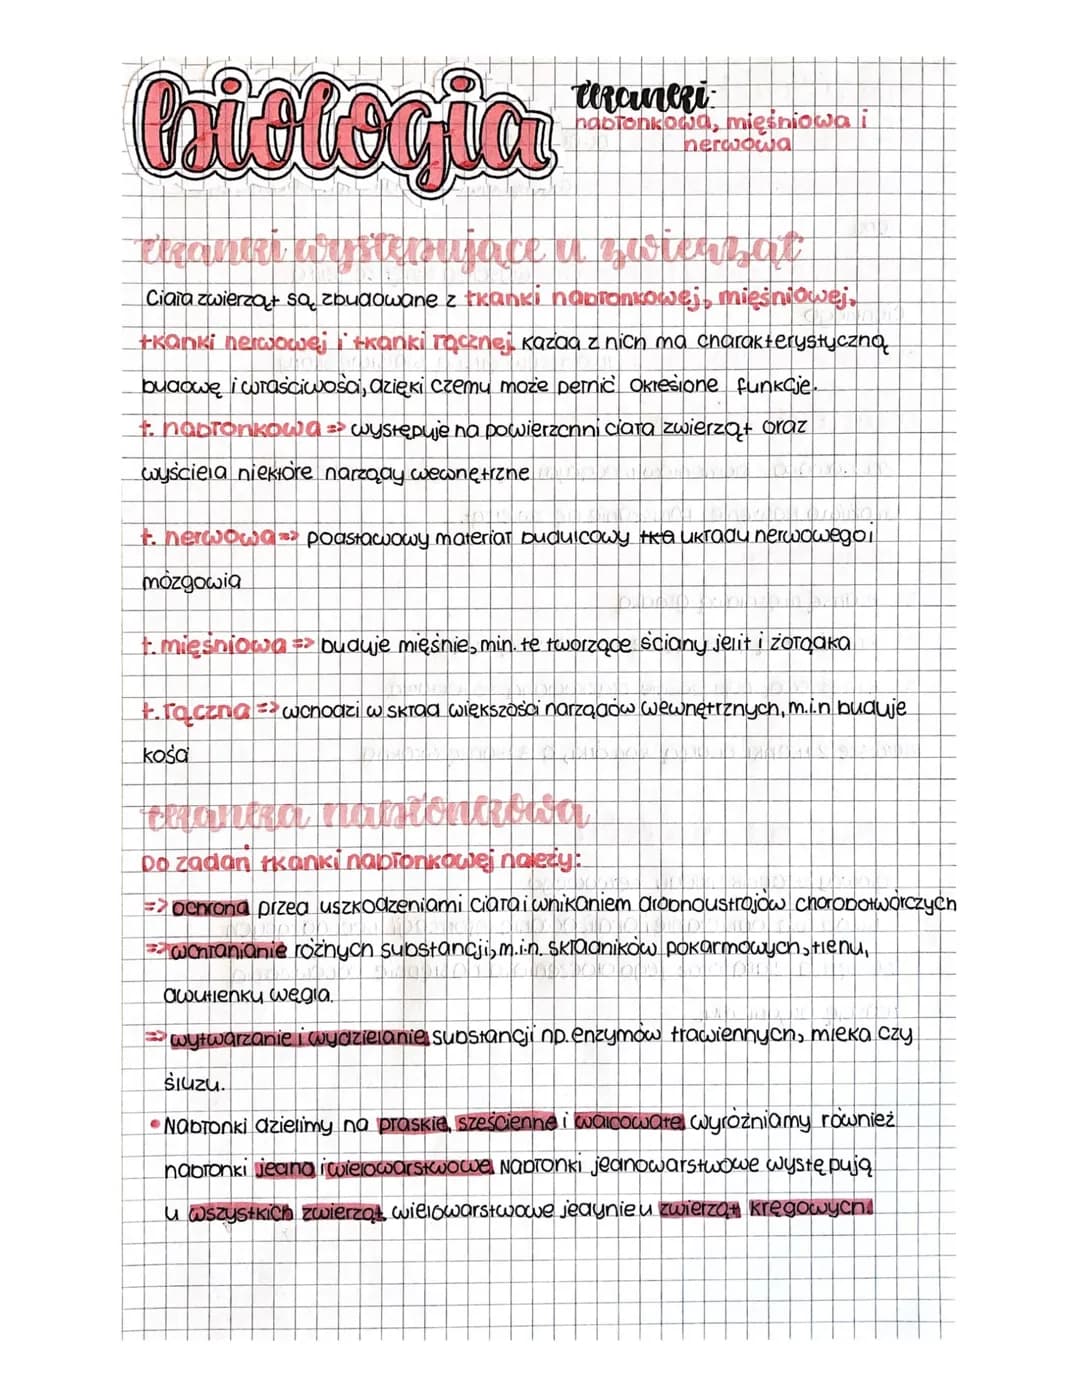 biologia
tkanki:
nabłonkowa, mięśniowa i
nerwowa
tkanki występujące u zwierząt
Ciała zwierząt są zbudowane z tkanki nabłonkowej, mięśniowej,
tkanki nerwowej i tkanki łącznej. Każda z nich ma charakterystyczną
budowę i właściwości, dzięki czemu może pełnić określone funkcje.
t. nabłonkowa => występuje na powierzchni ciała zwierząt oraz
wyściela niektóre narządy wewnętrzne
t. nerwowa => podstawowy materiał budulcowy tka układu nerwowego i
mózgowia
t. mięśniowa => buduje mięśnie, min. te tworzące ściany jelit i żołądka
t. łączna => wchodzi w skład większości narządów wewnętrznych, m.i.n buduje
kości
tkanka nabłonkowa
Do zadań tkanki nabłonkowej należy:
=> ochrona przed uszkodzeniami ciała i wnikaniem drobnoustrojów chorobotwórczych
=> wchłanianie różnych substancji, m.in. składników pokarmowych, tlenu,
dwutlenku węgla.
=> wytwarzanie i wydzielanie substancji np. enzymów trawiennych, mleka czy
śluzu.
• Nabłonki dzielimy na płaskie, sześcienne i walcowate. wyróżniamy również
nabłonki jedno i wielowarstwowe. Nabłonki jednowarstwowe występują
u wszystkich zwierząt, wielowarstwowe jedynie u zwierząt kręgowych!